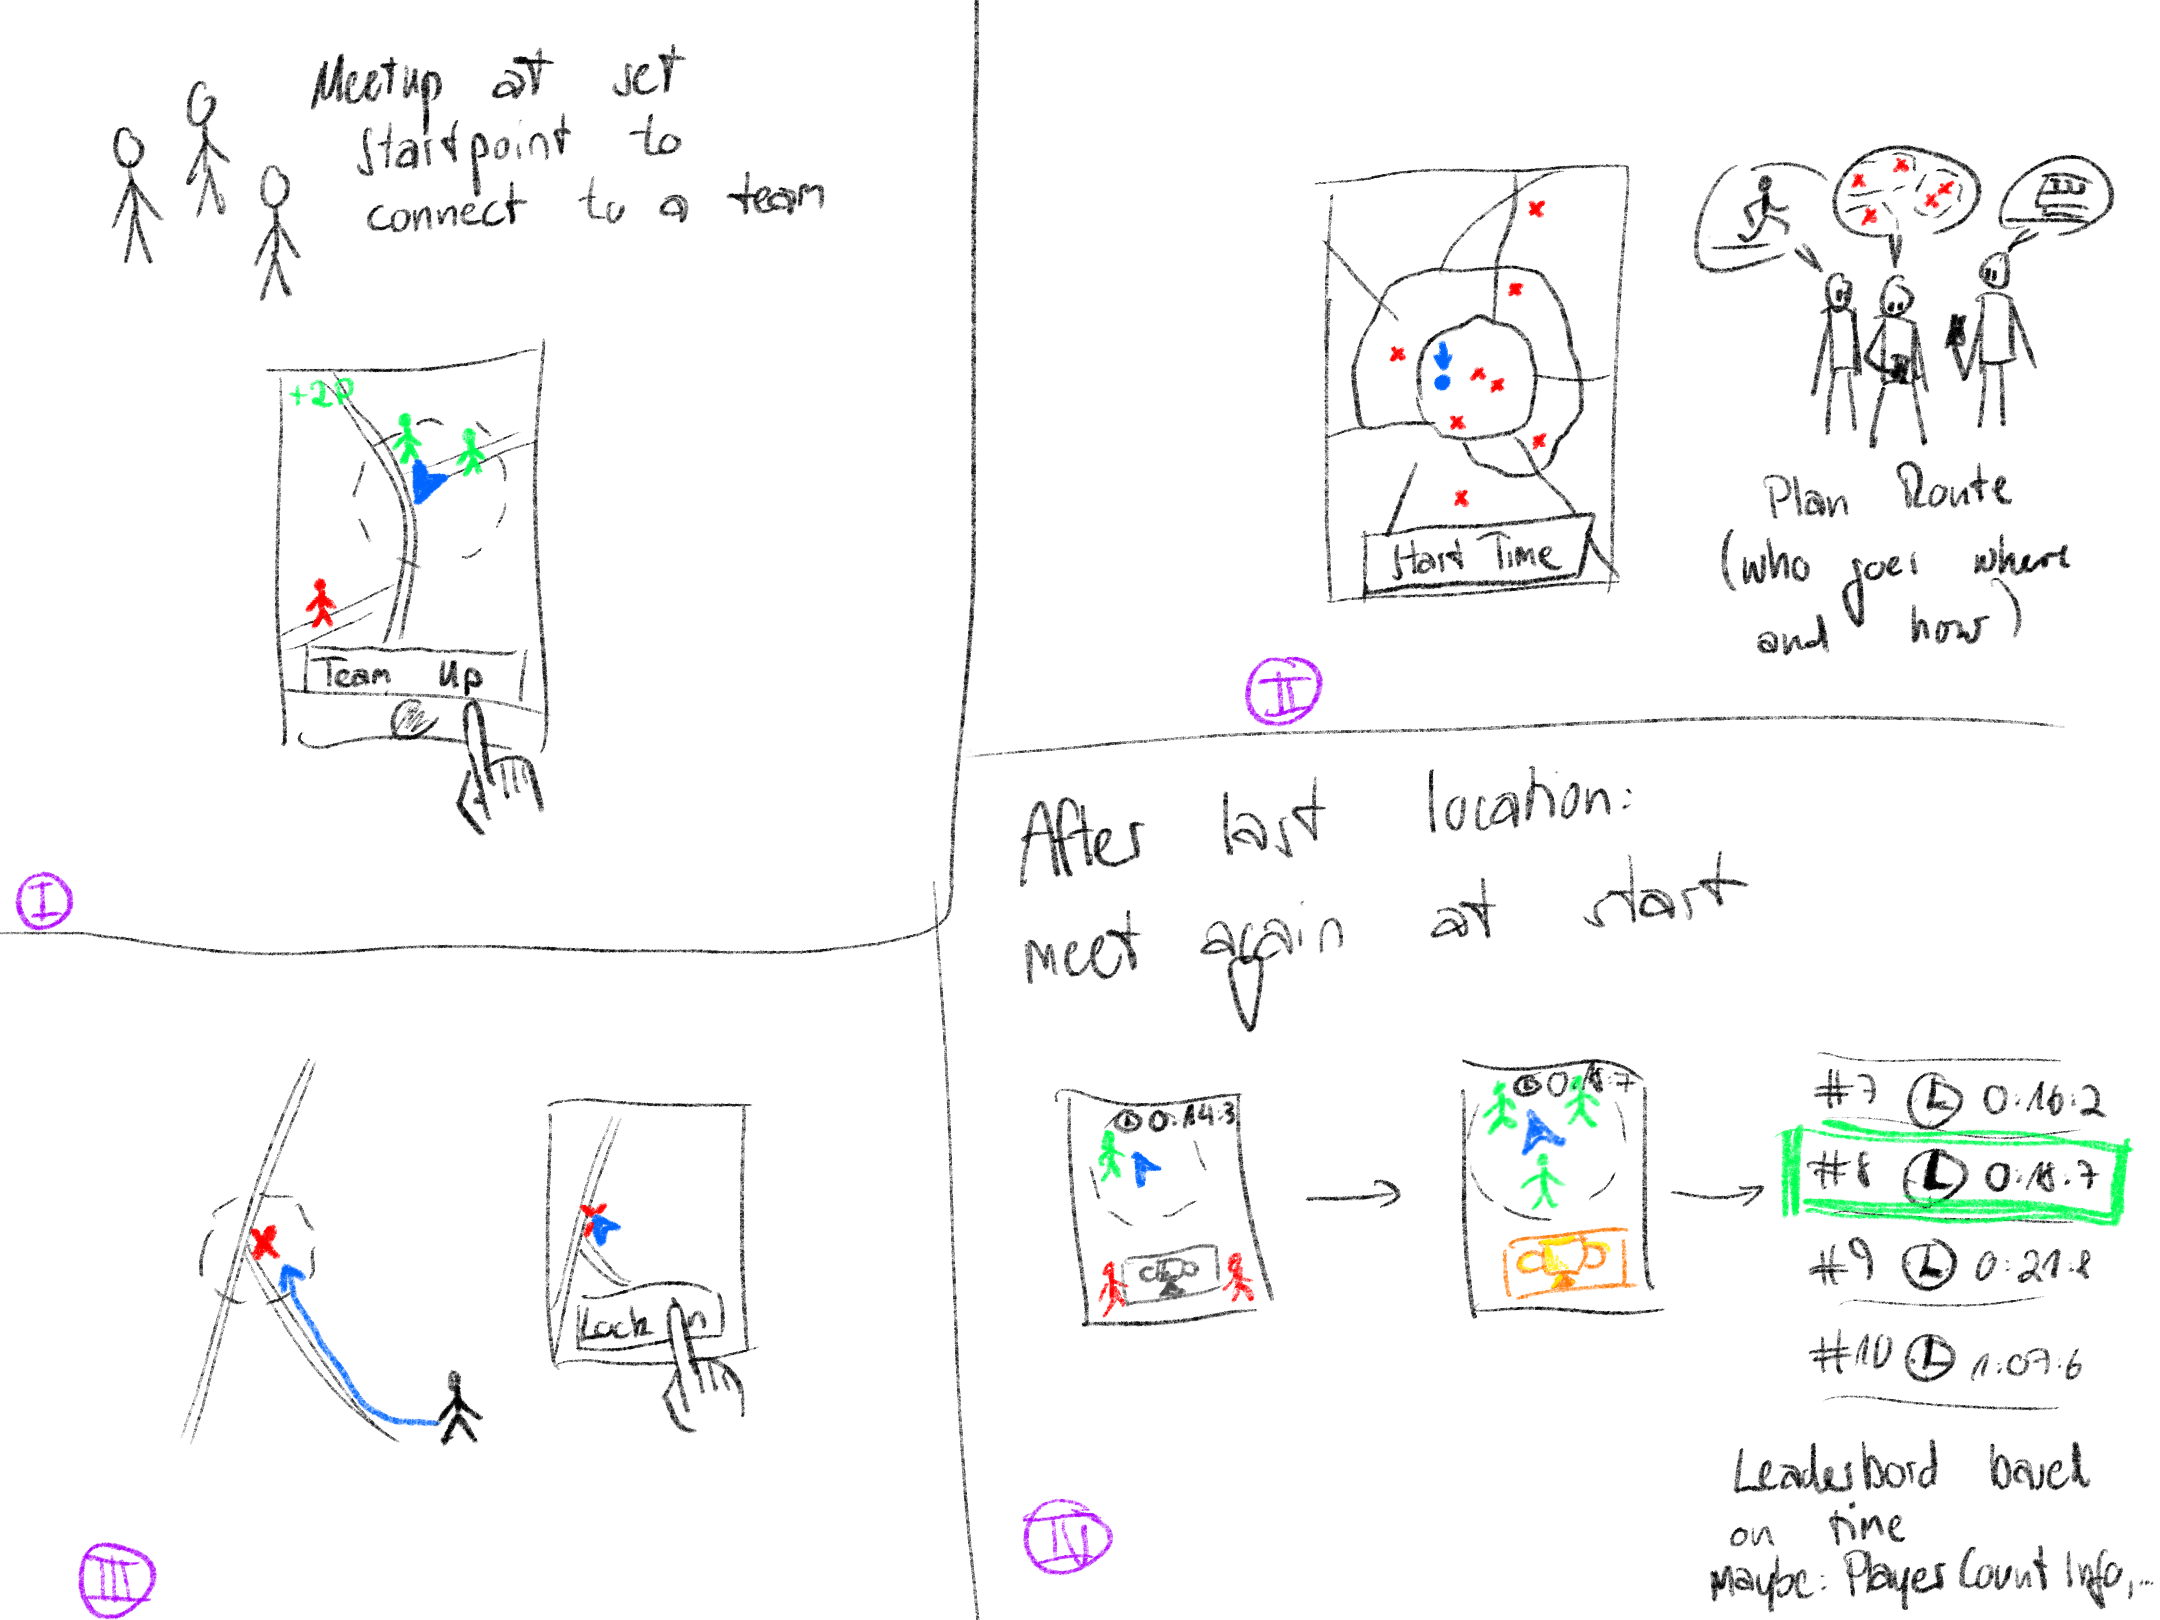 Meetup at set
startpoint to
connect to a team
+2P
Team Up
I
Start Time
Plan Route
(who goes where
and how)
II
Lock In
III
After last location:
meet again at start
0:14:3
0:18:7
#7 0:16:2
#8 0:18:7
#9 0:21:8
#10 1:07:6
Leaderbord based
on time
maybe: Player Count Info,...
IV